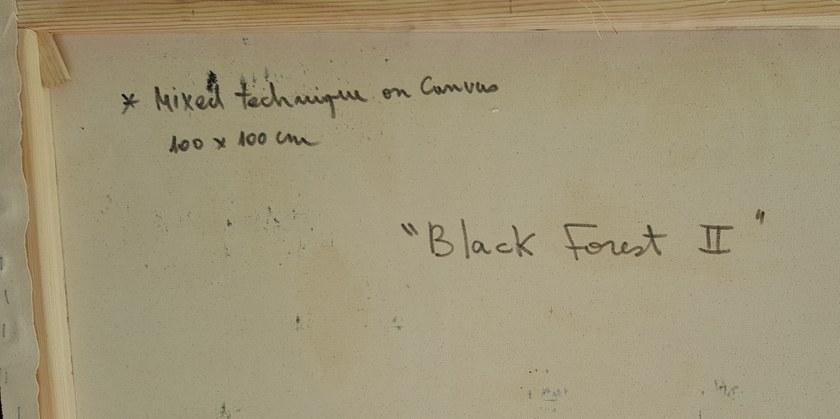 * Mixed technique on Canvas
100 x 100 cm
"Black Forest II"